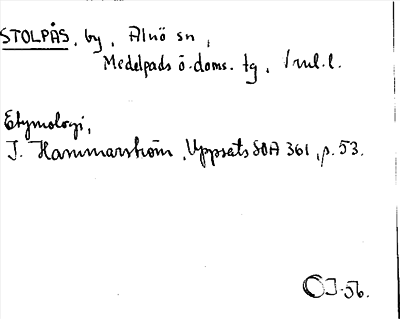 STOLPÅS, by, Alnö sn,
Medelpads ö. doms. tg,
Etymologi,
J. Hammarström, Uppsats SOA 361, p. 53.
OJ-56.